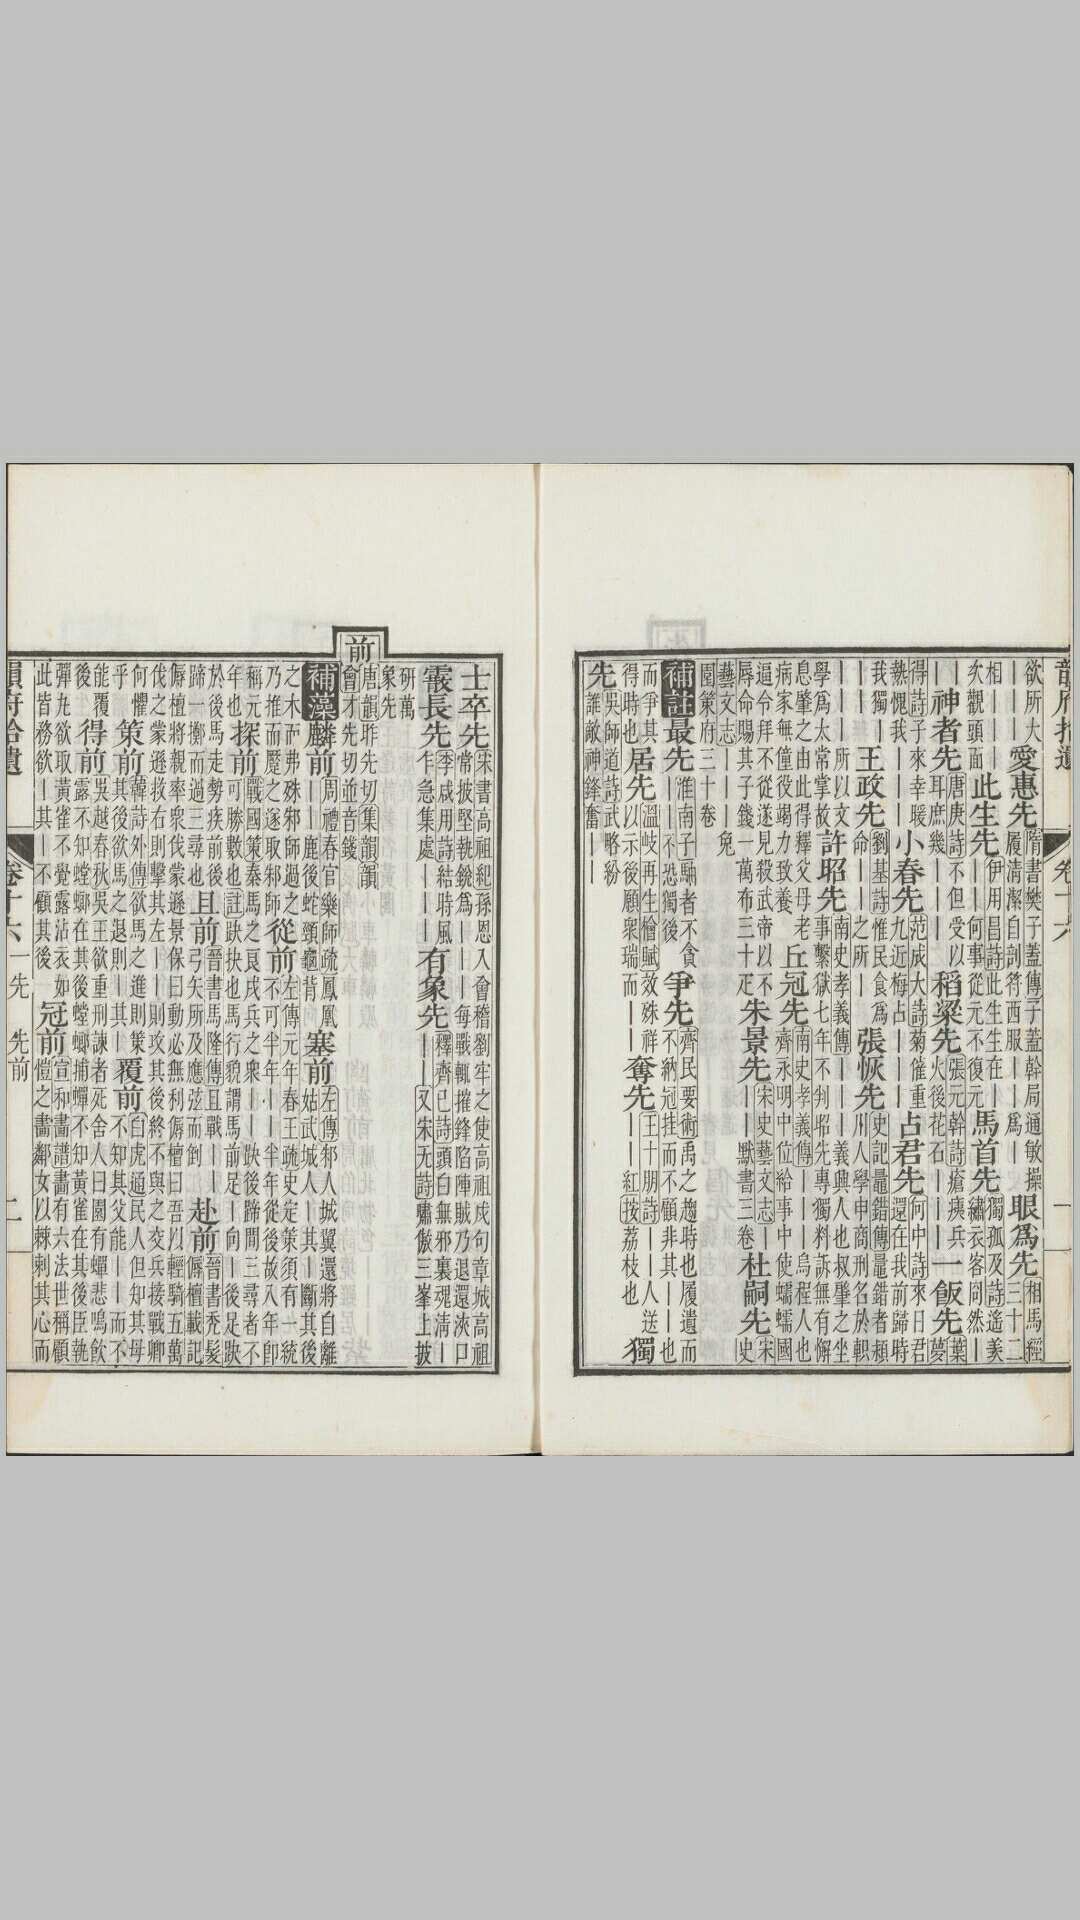 韻府拾遺 卷十六 一
欲所大｜｜｜愛惠先隋書樊子蓋傳子蓋幹局通敏操履清潔自剖符西服｜｜爲｜眼爲先相馬經三十二
相｜｜｜次觀頭面此生先伊用昌詩此生生在｜｜｜何事從元不復元馬首先獨孤及詩遙羨繡衣客冏然｜
｜｜神者先唐庚詩不但受以耳庶幾｜｜｜稻粱先張元幹詩瘡痍兵火後花石｜｜｜一飯先葉夢
得詩子來幸暖熱愧我｜｜｜小春先范成大詩菊催重九近梅占｜｜｜占君先何中詩來日君還在我前歸時
我獨｜｜｜王政先劉基詩惟民食爲命｜｜之所｜張恢先史記鼂錯傳鼂錯者潁川人學申商刑名於軹
｜｜｜｜所以文學爲太常掌故許昭先南史孝義傳｜｜｜義興人也叔肇之坐事繫獄七年不判昭先專獨料訴無有懈
息肇之由此得釋父母老病家無僮役竭力致養丘冠先南史孝義傳｜｜｜烏程人也齊永明中位給事中使蠕蠕國
逼令拜不從遂見殺武帝以不辱命賜其子錢一萬布三十疋朱景先宋史藝文志｜｜｜默書三卷杜嗣先宋史
藝文志｜｜｜兔園策府三十卷
補註最先淮南子騧者不貪｜｜不恐獨後爭先齊民要術禹之趨時也履遺而不納冠挂而不顧非其｜｜也
而爭其得時也居先溫岐再生檜賦效殊祥以示後顧衆瑞而｜｜奪先王十朋詩｜｜人送｜｜紅按荔枝也獨
先吳師道詩武略紛誰敵神鋒奮｜｜
士卒先宋書高祖紀孫恩入會稽劉牢之使高祖戍句章城高祖常披堅執銳爲｜｜｜每戰輒摧鋒陷陣賊乃退還浹口
霰長先李咸用詩結時風乍急集處｜｜｜有象先釋齊己詩頭白無邪裏魂清｜｜｜又宋无詩嘯傲三峯上披
研萬象先
前唐韻昨先切集韻會才先切並音錢
補藻麟前周禮春官樂師疏鳳凰｜｜鹿後蛇頸龜背塞前左傳邾人城翼還將自離姑武城人｜其｜斷其後
之木而弗殊邾師過之乃推而蹷之遂取邾師從前左傳元年春王疏史定策須有一統不可半年｜｜半年從後故入年卽
稱元年也探前戰國策秦馬之良戎兵之衆｜｜趹後蹄間三尋者不可勝數也註趹抉也馬行貌謂馬前足｜向｜後足趹
於後馬走勢疾前後蹄一擲而過三尋也且前晉書馬隆傳且戰｜｜弓矢所及應弦而倒赴前晉書禿髮傉檀載記
傉檀將親率衆伐蒙遜景保曰動必無利傉檀曰吾以輕騎五萬伐之蒙遜救右則擊其左｜｜則攻其後終不與之交兵接戰卿
何懼乎策前韓詩外傳欲馬之進則策其後欲馬之退則｜其｜覆前白虎通民人但知其母不知其父能｜｜而不
能覆後得前吳越春秋吳王欲重刑諫者死舍人曰園有蟬悲鳴飲露不知螳螂在其後螳螂捕蟬不知黃雀在其後臣執
彈丸欲取黃雀不覺露沾衣如此皆務欲｜其｜不顧其後冠前宣和畫譜畫有六法世稱顧愷之畫鄰女以棘刺其心而
韻府拾遺 卷十六 一先 先前 二